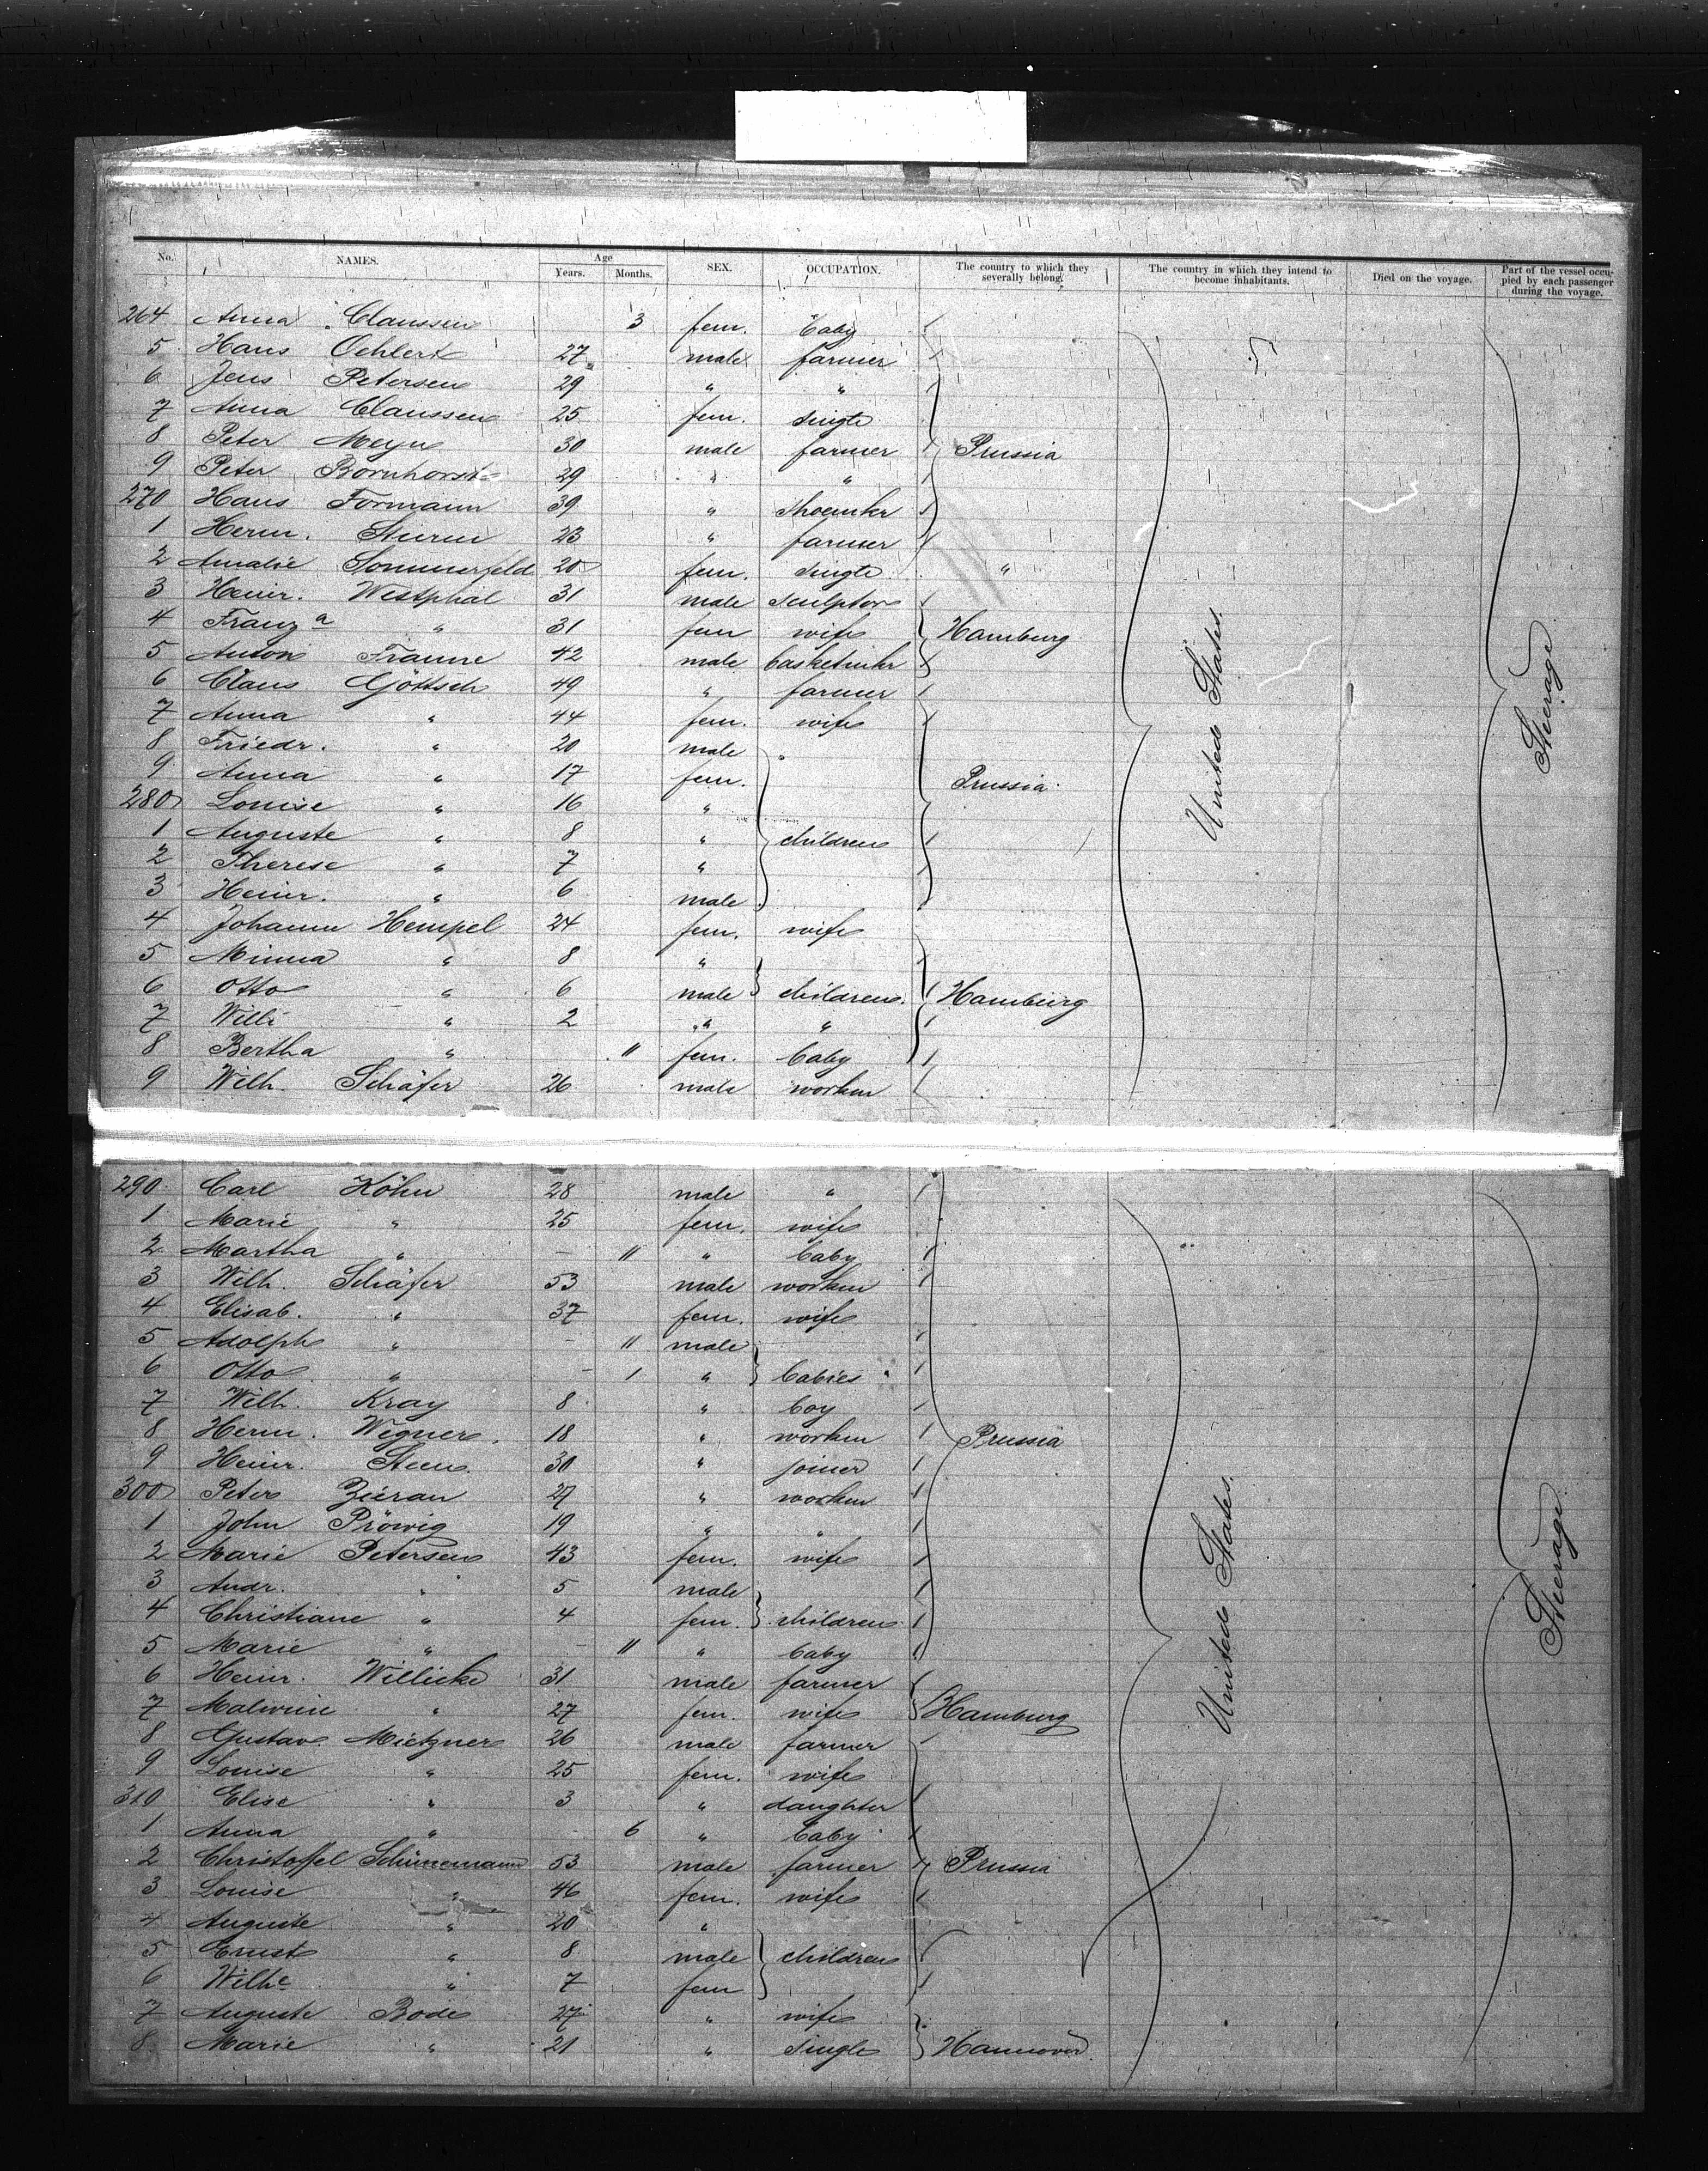 No. NAMES. Age Years. Months. SEX. OCCUPATION. The country to which they severally belong. The country in which they intend to become inhabitants. Died on the voyage. Part of the vessel occupied by each passenger during the voyage.
264 Anna Claussen 3 fem. baby
5 Hans Oehlert 27 male farmer
6 Jens Petersen 29 " "
7 Anna Claussen 25 fem. single
8 Peter Meyn 30 male farmer Prussia
9 Peter Bornhorst 29 " "
270 Hans Formann 39 " Shoemkr
1 Herm. Sturm 23 " farmer
2 Amalie Sommerfeld 20 fem. single "
3 Heinr. Westphal 31 male sculptor
4 Franz a " 31 fem wife Hamburg
5 Anton Fraune 42 male basketmkr
6 Claus Göttsch 49 " farmer
7 Anna " 44 fem. wife
8 Friedr. " 20 male
9 Anna " 17 fem. Prussia
280 Louise " 16 " United States. Steerage
1 Auguste " 8 " children
2 Therese " 7 "
3 Heinr. " 6 male
4 Johanne Hempel 24 fem. wife
5 Minna " 8 "
6 Otto " 6 male children Hamburg
7 Willi " 2 " "
8 Bertha " 11 fem. baby
9 Wilh. Schäfer 26 male workm
290 Carl Köhn 28 male "
1 Marie " 25 fem. wife
2 Martha " - 11 " baby
3 Wilh. Schäfer 53 male workm
4 Elisab. " 37 fem. wife
5 Adolph " - 11 male
6 Otto " - 1 " babies
7 Wilh. Kray 8 " boy
8 Herm. Wegner 18 " workm Prussia
9 Heinr. Steen 30 " joiner
300 Peter Zieran 27 " workm
1 John Pröwig 19 " "
2 Marie Petersen 43 fem. wife
3 Andr. " 5 male
4 Christiane " 4 fem. children United States. Steerage
5 Marie " - 11 " baby
6 Heinr. Willicke 31 male farmer
7 Malwine " 27 fem. wife Hamburg
8 Gustav Mietzner 26 male farmer
9 Louise " 25 fem. wife
310 Elise " 3 " daughter
1 Anna " - 6 " baby
2 Christoffel Schünemann 53 male farmer Prussia
3 Louise " 46 fem. wife
4 Auguste " 20 "
5 Ernst " 8 male children
6 Wilhe " 7 fem
7 Auguste Bode 27 " wife
8 Marie " 21 " single Hannover